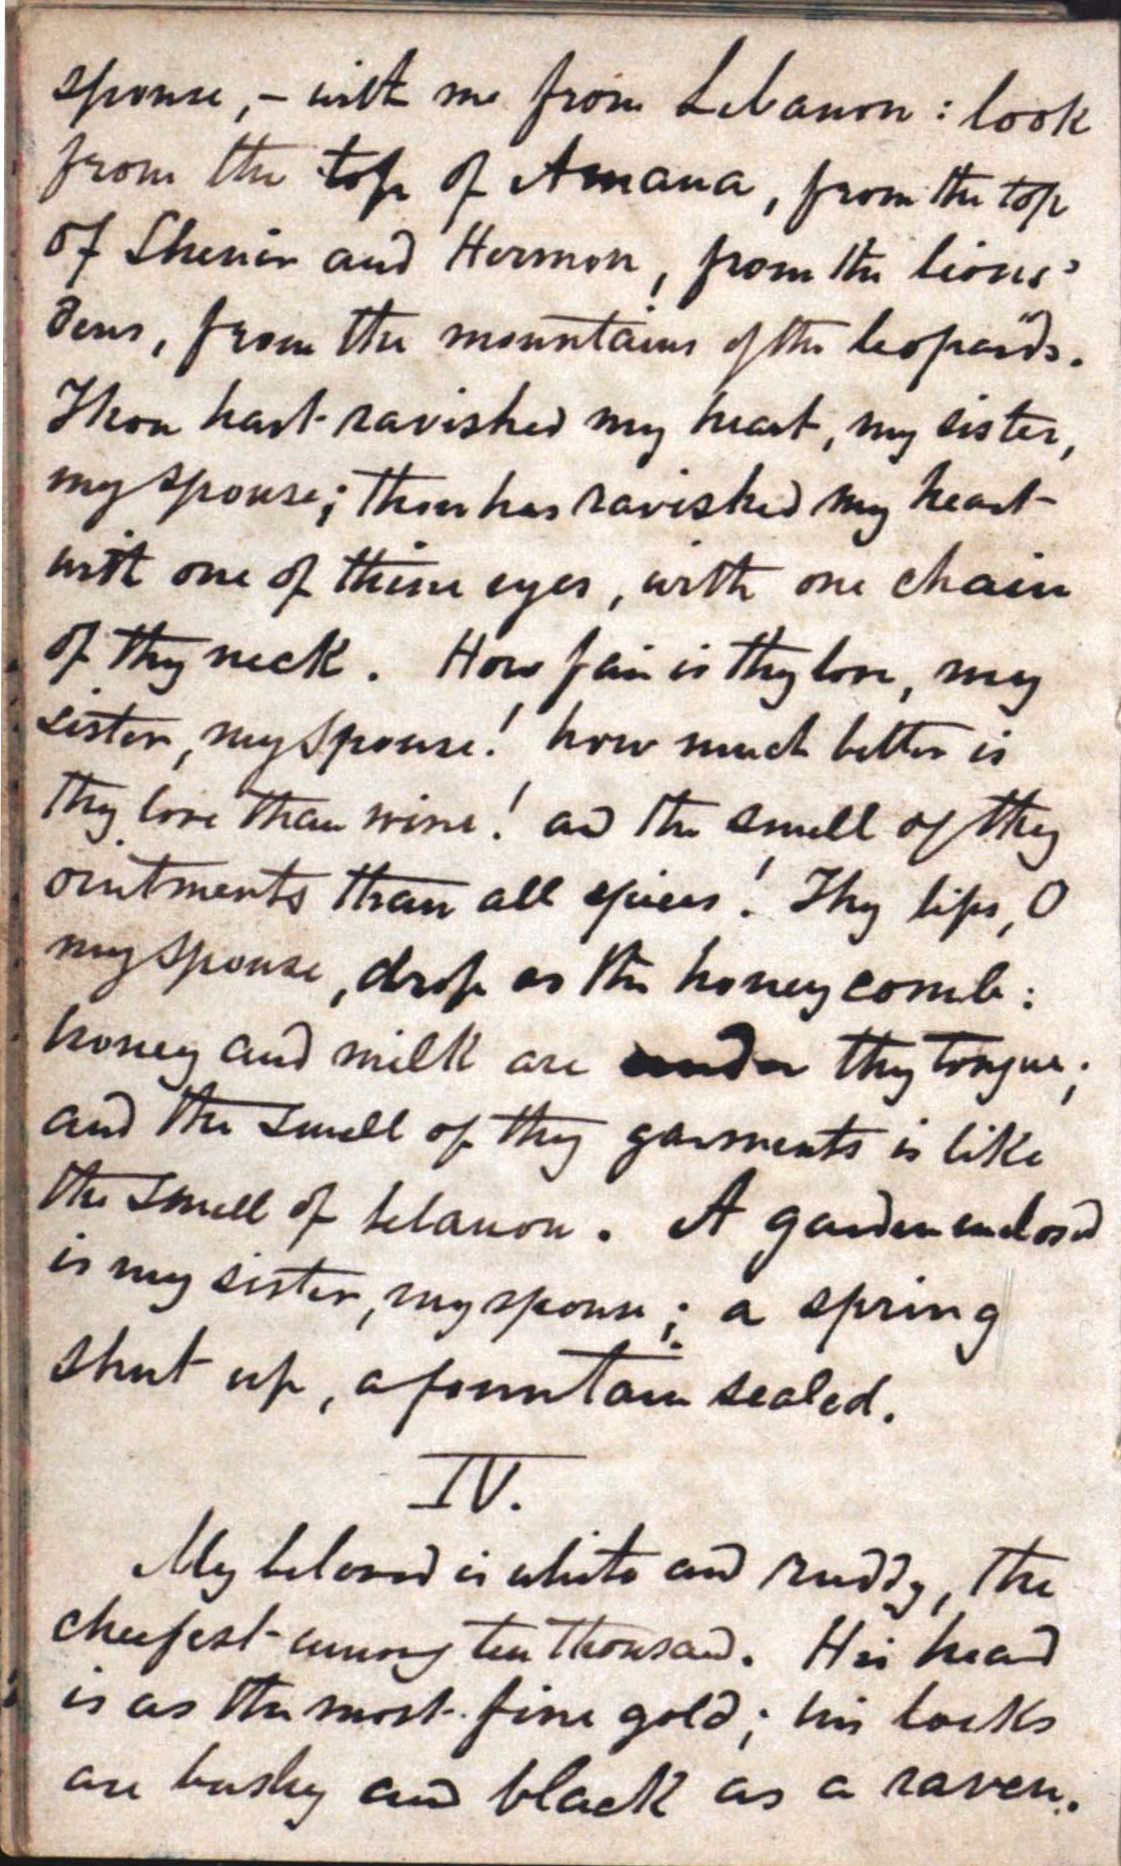 spouse, - with me from Lebanon: look
from the top of Amana, from the top
of Shenir and Hermon, from the lions'
dens, from the mountains of the leopards.
Thou hast ravished my heart, my sister,
my spouse; thou has ravished my heart
with one of thine eyes, with one chain
of thy neck. How fair is thy love, my
sister, my spouse! how much better is
thy love than wine! and the smell of thy
ointments than all spices! Thy lips, O
my spouse, drop as the honeycomb:
honey and milk are under thy tongue;
and the smell of thy garments is like
the smell of lebanon. A garden enclosed
is my sister, my spouse; a spring
shut up, a fountain sealed.
IV.
My beloved is white and ruddy, the
cheefest among ten thousand. His head
is as the most fine gold; his locks
are bushy and black as a raven.